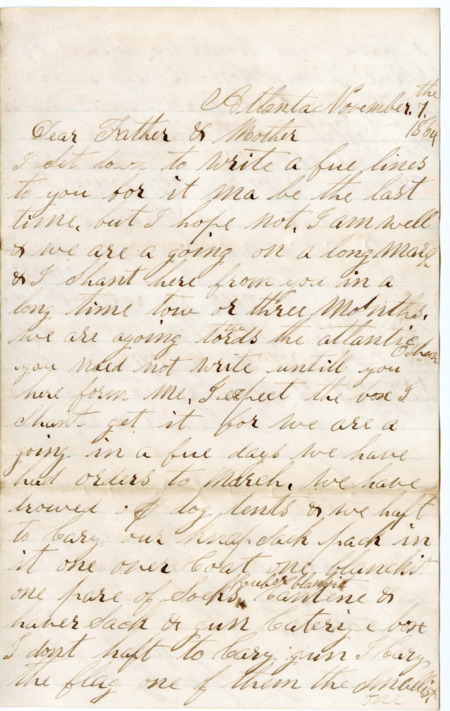 Atlenta November. the 7. 1864
Dear Father & Mother
I set down to write a fue lines
to you for it ma be the last
time. but I hope not, I am well
& we are a going on a long march
& I shant here from you in a
long time tow or three Months.
we are agoing tords the atlantic Ochean
you need not write untill you
here form me, I expect the box I
shant get it for we are a
going in a fue days we have
had orders to march, we have
drowed dog tents & we haft
to Cary our knapsack pack in
it one over Coat one blanckit
one pare of Socks, ruber blankit Cantine &
haver Sack & gun Caterige box
I dont haft to Cary gun I Cary
the flag one of them the smallist one